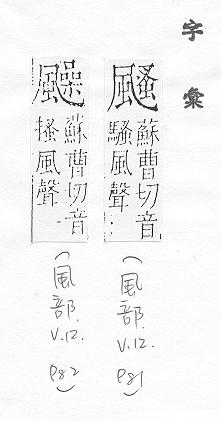 字彙
颾
蘇曹切音
騷風聲
(風部. V.12. P81)
蘇曹切音
搔風聲
(風部. V.12. P82)